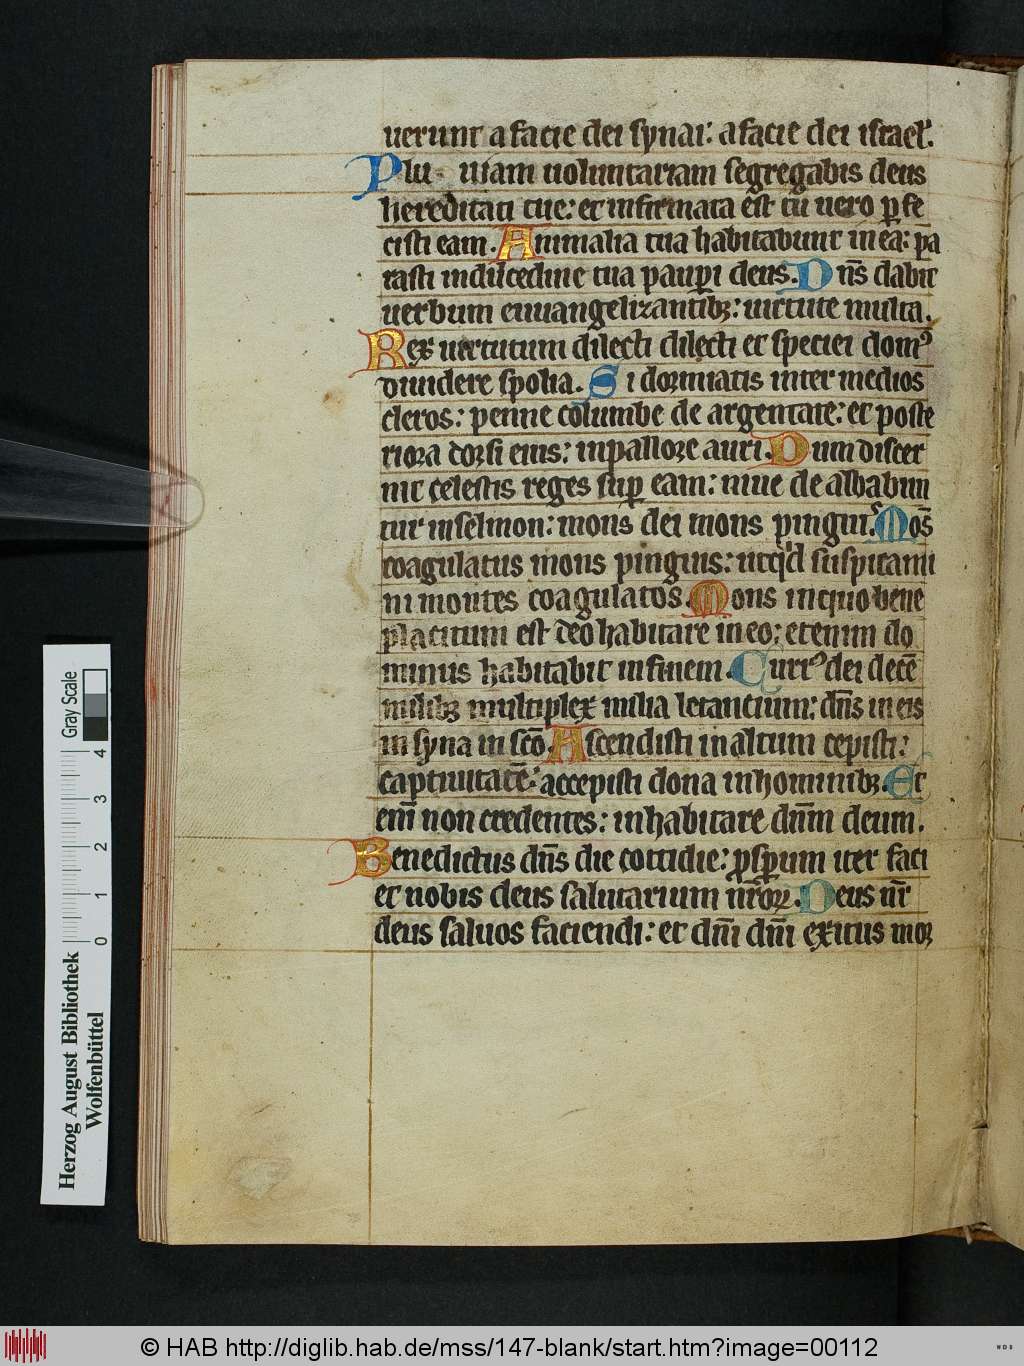 uerunt a facie dei synai: a facie dei israel.
Plu uiam uoluntariam segregabis deus
hereditati tue: et infirmata est tu uero ꝑfe
cisti eam. Animalia tua habitabunt in ea: pa
rasti in dulcedine tua pauꝑi deus. Dn̄s dabit
uerbum euuangelizantibꝫ: uirtute multa.
Rex uirtutum dilecti dilecti et speciei domꝰ
diuidere spolia. Si dormiatis inter medios
cleros: penne columbe de argentate: et poste
riora dorsi eius: in pallore auri. Dum discer
nit celestis reges suꝑ eam: niue de albabun
tur in selmon: mons dei mons pinguis. Mōs
coagulatus mons pinguis: ut qͥd suspicami
ni montes coagulatos. Mons in quo bene
placitum est deo habitare in eo: etenim do
minus habitabit in finem. Currꝰ dei decē
milibꝫ multiplex milia letantium: dn̄s in eis
in syna in scō. Ascendisti in altum cepisti:
captiuitatē: accepisti dona in hominibꝫ. Et
enī non credentes: inhabitare dn̄m deum.
Benedictus dn̄s die cottidie: ꝓsꝑum iter faci
et nobis deus salutarium nr̄oꝝ. Deus nr̄
deus saluos faciendi: et dn̄i dn̄i exitus moꝝ
Herzog August Bibliothek
Wolfenbüttel
0 1 2 3 4
Gray Scale
© HAB http://diglib.hab.de/mss/147-blank/start.htm?image=00112